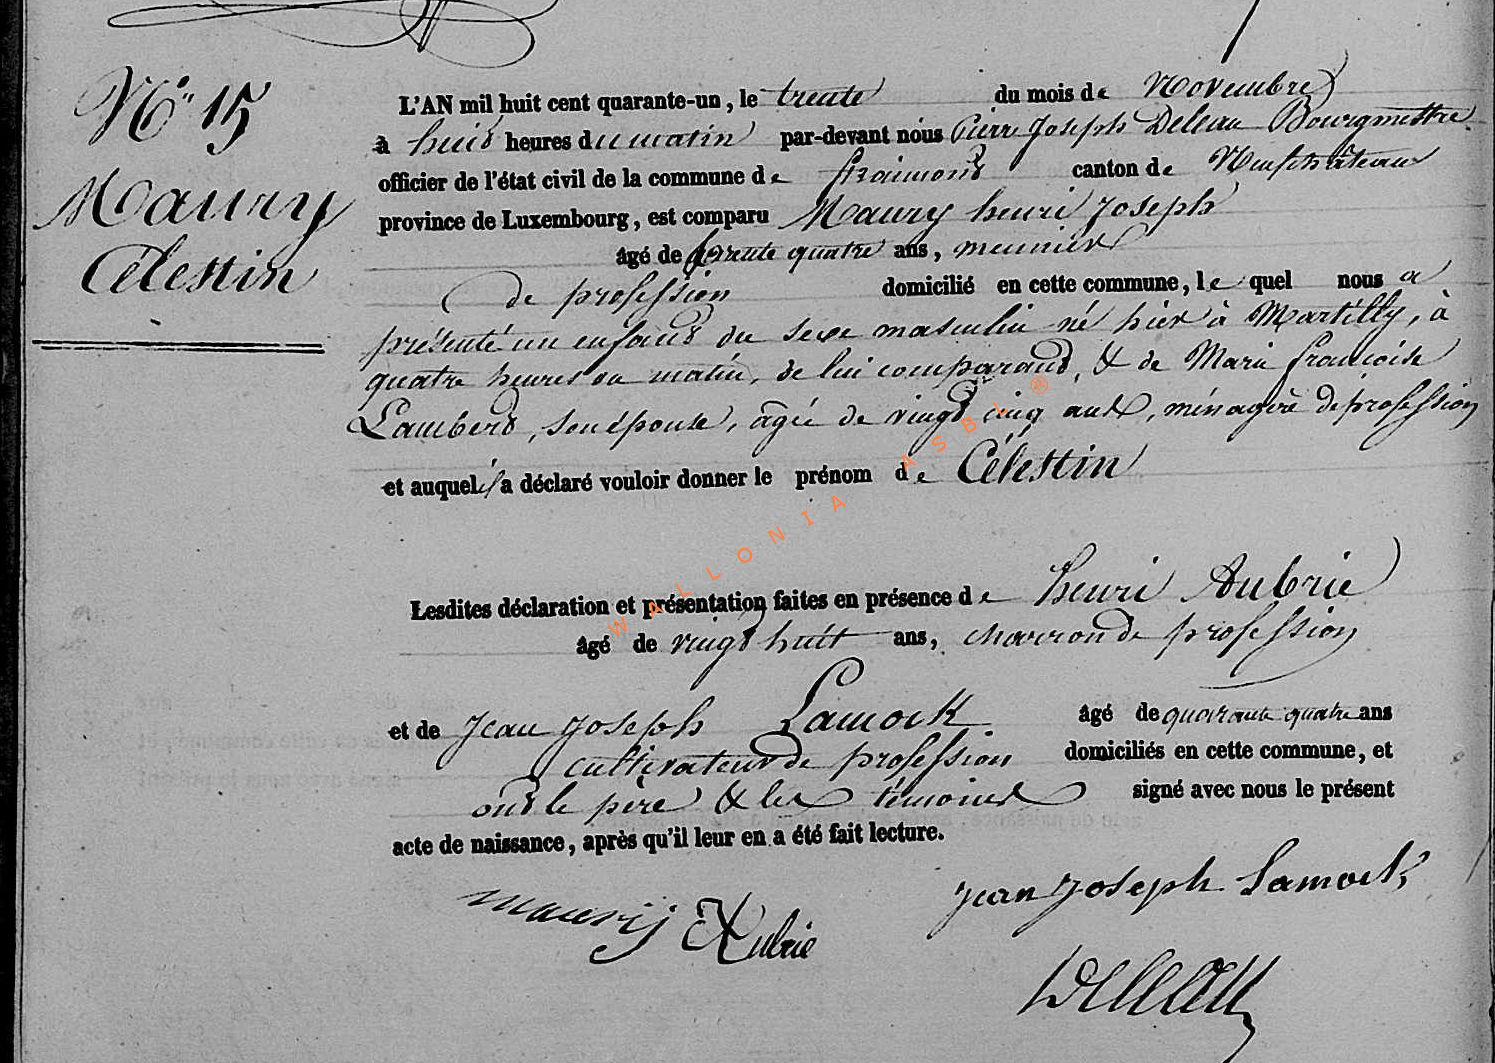 N° 15
Maury
Célestin
L'AN mil huit cent quarante-un, le trente du mois de Novembre
à huid heures du matin par-devant nous Pierre Joseph Deleau Bourgmettre
officier de l'état civil de la commune de Straimond canton de Neufchâteau
province de Luxembourg, est comparu Maury henri Joseph
âgé de trente quatre ans, meunier
de profession domicilié en cette commune, le quel nous a
présenté un enfand du sexe masculin né hier à Martilly, à
quatre heures du matin, de lui comparand, & de Marie françoise
Lamberd, son épouse, agée de vingd cinq ans, ménagère de profession
et auquel il a déclaré vouloir donner le prénom de Célestin
Lesdites déclaration et présentation faites en présence de henri Aubrie
âgé de vingd huit ans, charron de profession
et de Jean Joseph Lamock âgé de quarante quatre ans
cultivateur de profession domiciliés en cette commune, et
ond le père & les témoins signé avec nous le présent
acte de naissance, après qu'il leur en a été fait lecture.
Jean Joseph Lamock
maurij Aubrie
Deleau
WALLONIA ASBL ®